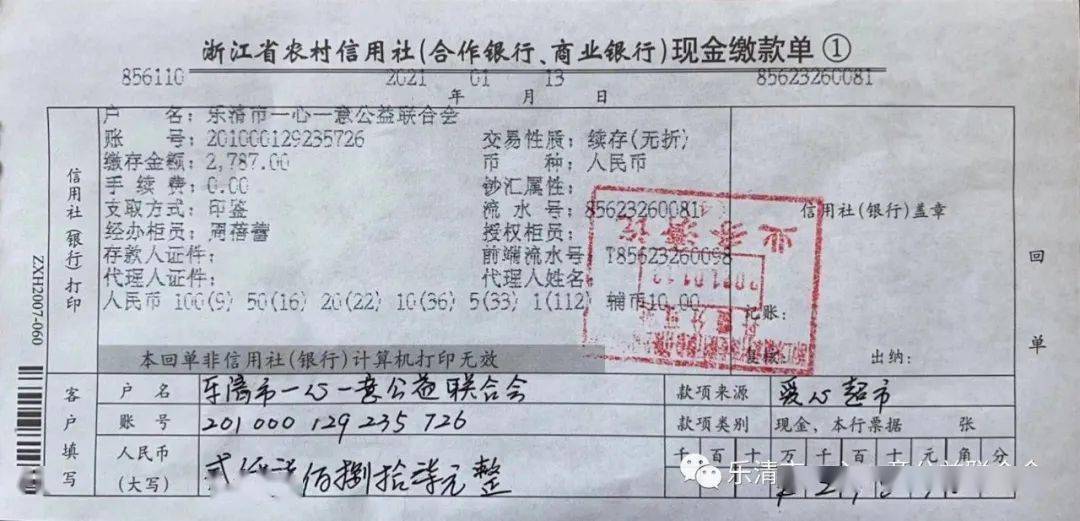 浙江省农村信用社(合作银行、商业银行)现金缴款单①
856110 2021 01 13 85623260081
年 月 日
户 名：乐清市一心一意公益联合会
账 号：201000129235726 交易性质：续存(无折)
缴存金额：2,787.00 币 种：人民币
手 续 费：0.00 钞汇属性：
支取方式：印鉴 流 水 号：85623260081 信用社(银行)盖章
经办柜员：周蓓蕾 授权柜员：
存款人证件： 前端流水号 T85623260098
代理人证件： 代理人姓名：
人民币 100(9) 50(16) 20(22) 10(36) 5(33) 1(112) 辅币10.00 记账：
本回单非信用社(银行)计算机打印无效 复核： 出纳：
信用社(银行)打印
回单
ZXH2007-060
客户填写
户 名 乐清市一心一意公益联合会 款项来源 爱心超市
账 号 201000129235726 款项类别 现金、本行票据 张
人民币 千 百 十 万 千 百 十 元 角 分
(大写) 贰 佰捌拾柒元整
乐清